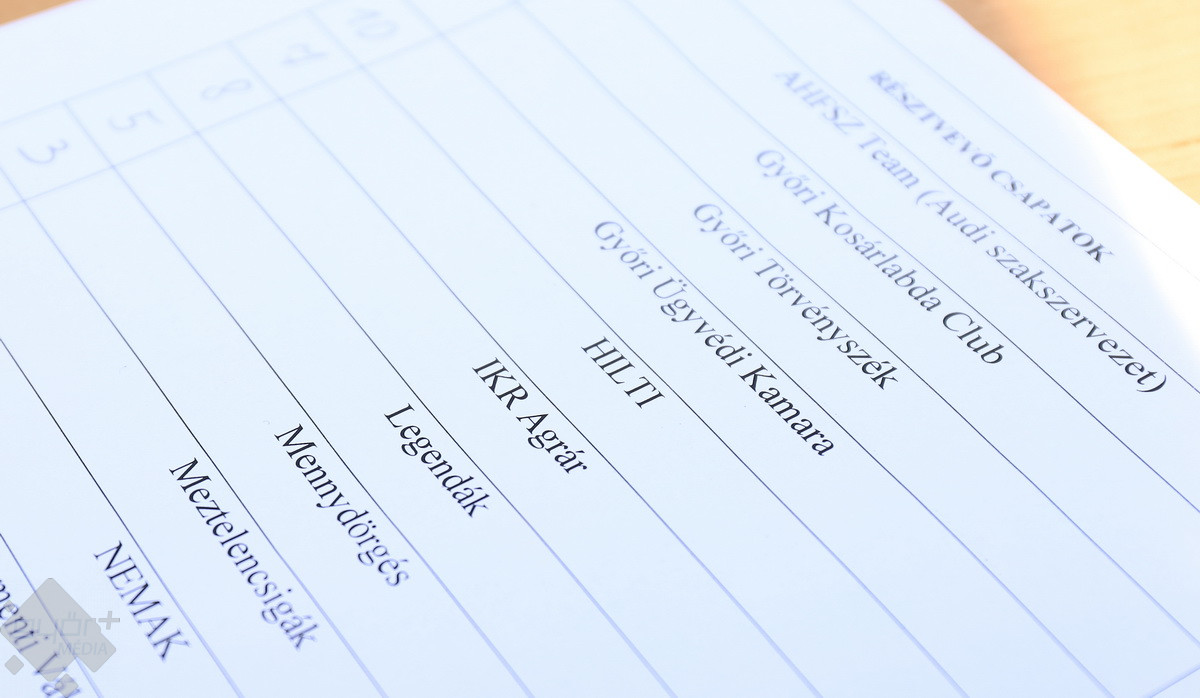 RÉSZTVEVŐ CSAPATOK
AHFSZ Team (Audi szakszervezet)
Győri Kosárlabda Club
Győri Törvényszék
Győri Ügyvédi Kamara
HILTI
IKR Agrár
Legendák
Mennydörgés
Meztelencsigák
NEMAK
10
7
8
5
3
GYŐR+
MÉDIA